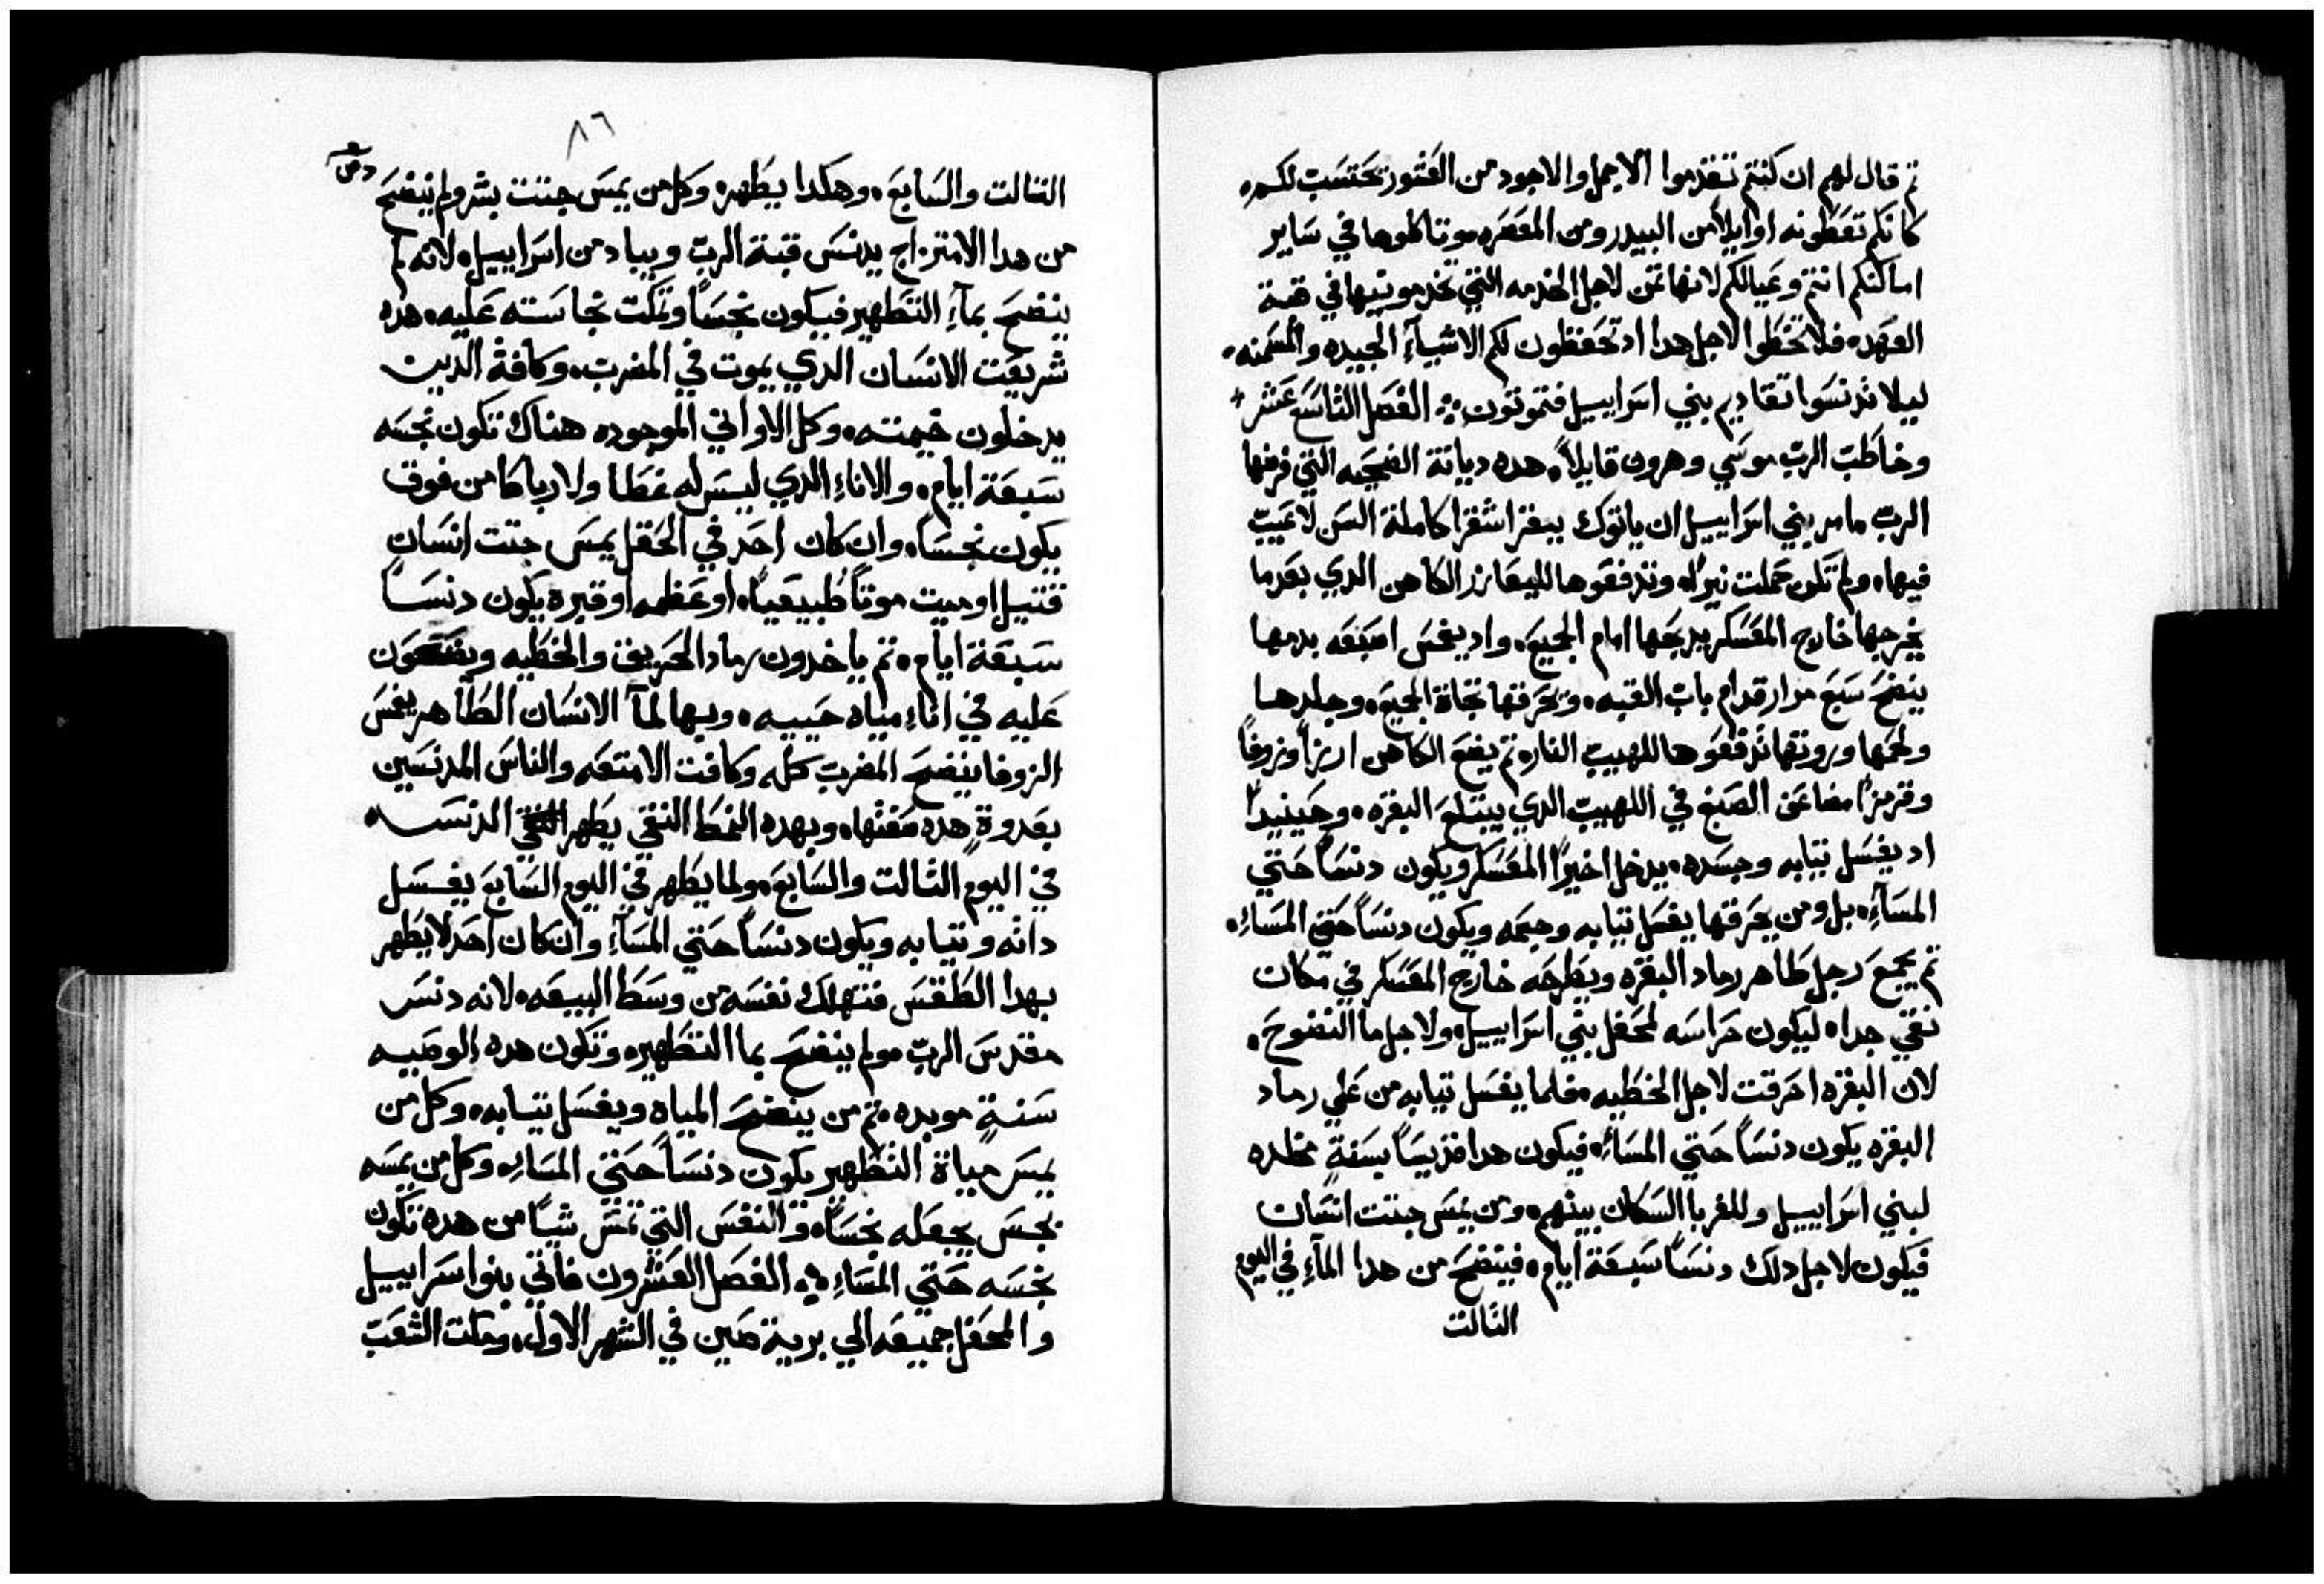 تم قال لهم ان كنتم تقدموا الاجمل والاجود من العشور تحتسب لكم،
كانكم تعطونه اوايلاً من البيدر ومن المعصره، وتاكلوها في ساير
اماكنكم انتم وعيالكم لانها تمن لاجل الخدمه التي تخدمونيها في قبة
العهد، فلا تخطوا لاجل هدا اد تحفظون لكم الاشياءِ الجيده والمسمنه،
ليلا تدنسوا تقاديم بني اسراييل فتموتون ܀ الفصل التاسع عشر
وخاطب الرب موسي وهرون قايلاً، هده ديانة الضحيه التي فرضها
الرب، مامر بني اسراييل ان ياتوك ببقرا شقرا كاملة السن لا عيب
فيها، ولم تكن حملت نيراً، وتدفعوها لليعازر الكاهن الدي بعدما
يخرجها خارج المعسكر يدبحها امام الجميع، واد يغمس اصبعه بدمها
ينضح سبع مرار قدام باب القبه، وتحرقها تجاة الجميع، وجلدها
ولحمها وروتها تدفعوها للهيب النار، تم يضع الكاهن ارزاً وزوفاً
وقرمزاً مضاعف الصبغ في اللهيب الدي يبتلع البقره، وحينيداً
اد يغسل تيابه وجسده، يدخل اخيراً المعسكر ويكون دنساً حتي
المساءِ، بل ومن يحرقها يغسل تيابه وجسمه ويكون دنساً حتي المساءِ،
تم يجمع رجل طاهر رماد البقره ويطرحه خارج المعسكر في مكان
نقي جدا، ليكون حراسه لمحفل بني اسراييل، ولاجل ما النضوح،
لان البقره احرقت لاجل الخطيه، فلما يغسل تيابه من علي رماد
البقره يكون دنساً حتي المساءِ، فيكون هدا قديساً بسنةٍ مخلده
لبني اسراييل وللغربا السكان بينهم، ومن يمس جتت انسان
فيكون لاجل دلك دنساً سبعة ايام، فينضح من هدا الماءِ في اليوم
التالت
٨٦
التالت والسابع، وهكدا يطهر، وكل من يمس جتت بشر ولم ينضح
من هدا الامتزاج يدنس قبة الرب ويباد من اسراييل، لانه لم
ينضح بماءِ التطهير فيكون نجساً وتمكت نجاسته عليه، هده
شريعت الانسان الدي يموت في المضرب، وكافة الدين
يدخلون خيمته، وكل الاواني الموجوده هناك تكون نجسه
سبعة ايام، والاناءِ الدي ليس له غطا ولا رباطا من فوق
يكون نجساً، وان كان احد في الحقل يمس جتت انسانٍ
قتيل او ميت موتاً طبيعياً، او عظمه او قبره يكون دنساً
سبعة ايام، تم ياخدون رماد الحريق والخطيه ويضعون
عليه في اناءِ مياه حييه، وبها لمآ الانسان الطاهر يغمس
الزوفا ينضح المضرب كله وكافت الامتعه والناس المدنسين
بعدوةٍ هده صفتها، وبهده النمط النقي يطهر الدنس،
في اليوم التالت والسابع، ولما يطهر في اليوم السابع يغسل
داته وتيابه ويكون دنساً حتي المساءِ وان كان احد لا يطهر
بهدا الطقس فتهلك نفسه من وسط البيعه، لانه دنس
مقدس الرب، ولم ينضح بما التطهير، وتكون هده الوصيه
سنةٍ موبده، تم من ينضح المياه ويغسل تيابه، وكل من
يمس مياة التطهير يكون دنساً حتي المساءِ، وكل من يمسه
نجس يجعله نجساً، والنفس التي تمس شياً من هده تكون
نجسه حتي المساءِ ܀ الفصل العشرون فاتي بنوا سراييل
والمحفل جميعه الي برية صين في الشهر الاول، ومكت الشعب